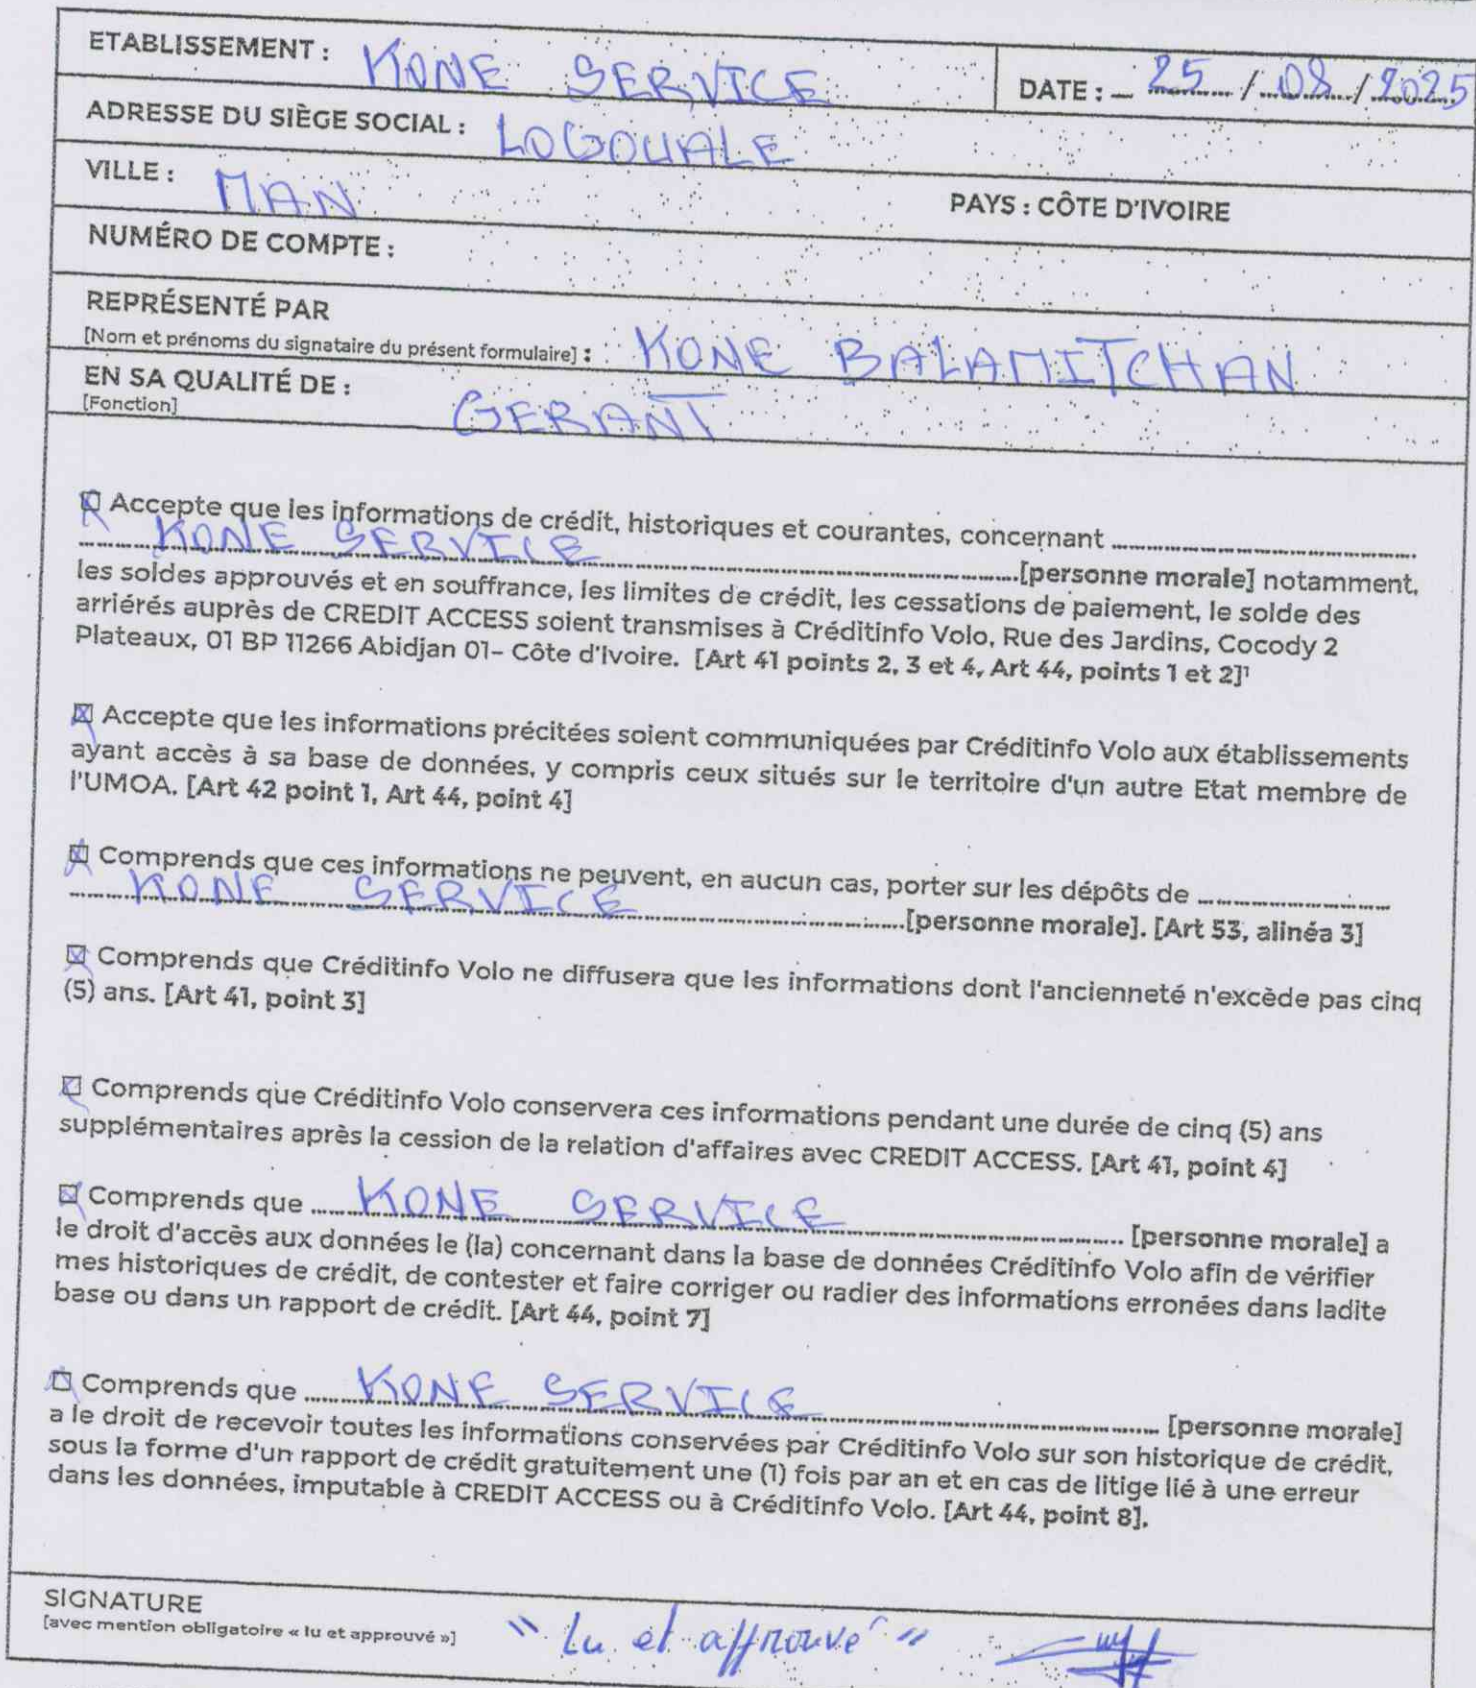 ETABLISSEMENT : KONE SERVICE
DATE : 25 / 08 / 2025
ADRESSE DU SIÈGE SOCIAL : LOGOUALE
VILLE : MAN
PAYS : CÔTE D'IVOIRE
NUMÉRO DE COMPTE :
REPRÉSENTÉ PAR
[Nom et prénoms du signataire du présent formulaire] : KONE BALAMITCHAN
EN SA QUALITÉ DE : GERANT
[Fonction]
Accepte que les informations de crédit, historiques et courantes, concernant
KONE SERVICE [personne morale] notamment,
les soldes approuvés et en souffrance, les limites de crédit, les cessations de paiement, le solde des
arriérés auprès de CREDIT ACCESS soient transmises à Créditinfo Volo, Rue des Jardins, Cocody 2
Plateaux, 01 BP 11266 Abidjan 01– Côte d'Ivoire. [Art 41 points 2, 3 et 4, Art 44, points 1 et 2]¹
Accepte que les informations précitées soient communiquées par Créditinfo Volo aux établissements
ayant accès à sa base de données, y compris ceux situés sur le territoire d'un autre Etat membre de
l'UMOA. [Art 42 point 1, Art 44, point 4]
Comprends que ces informations ne peuvent, en aucun cas, porter sur les dépôts de
KONE SERVICE [personne morale]. [Art 53, alinéa 3]
Comprends que Créditinfo Volo ne diffusera que les informations dont l'ancienneté n'excède pas cinq
(5) ans. [Art 41, point 3]
Comprends que Créditinfo Volo conservera ces informations pendant une durée de cinq (5) ans
supplémentaires après la cession de la relation d'affaires avec CREDIT ACCESS. [Art 41, point 4]
Comprends que KONE SERVICE [personne morale] a
le droit d'accès aux données le (la) concernant dans la base de données Créditinfo Volo afin de vérifier
mes historiques de crédit, de contester et faire corriger ou radier des informations erronées dans ladite
base ou dans un rapport de crédit. [Art 44, point 7]
Comprends que KONE SERVICE [personne morale]
a le droit de recevoir toutes les informations conservées par Créditinfo Volo sur son historique de crédit,
sous la forme d'un rapport de crédit gratuitement une (1) fois par an et en cas de litige lié à une erreur
dans les données, imputable à CREDIT ACCESS ou à Créditinfo Volo. [Art 44, point 8].
SIGNATURE
[avec mention obligatoire « lu et approuvé »] " Lu et approuvé "